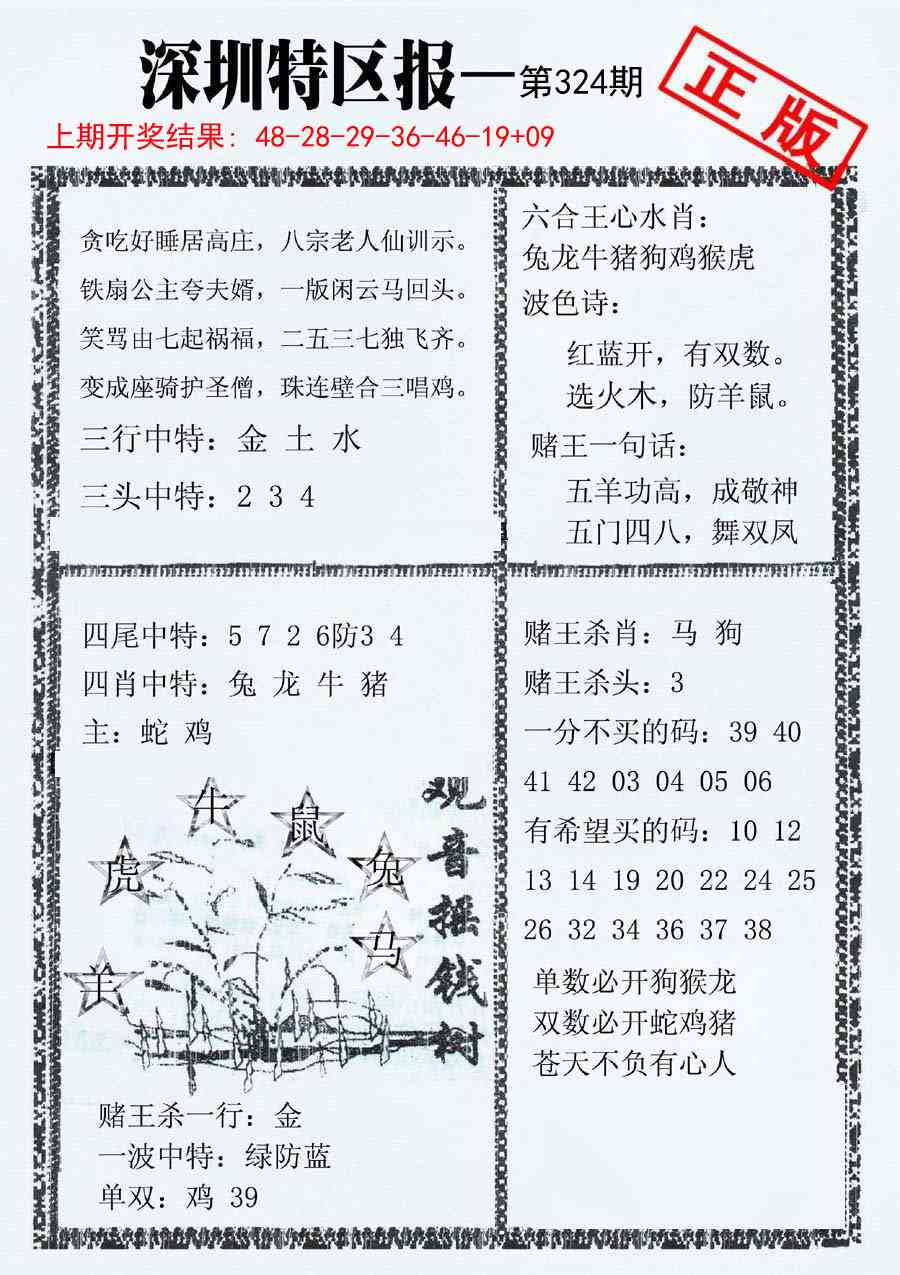 深圳特区报—第324期
正版
上期开奖结果：48-28-29-36-46-19+09
贪吃好睡居高庄，八宗老人仙训示。
铁扇公主夸夫婿，一版闲云马回头。
笑骂由七起祸福，二五三七独飞齐。
变成座骑护圣僧，珠连壁合三唱鸡。
三行中特：金 土 水
三头中特：2 3 4
六合王心水肖：
兔龙牛猪狗鸡猴虎
波色诗：
红蓝开，有双数。
选火木，防羊鼠。
赌王一句话：
五羊功高，成敬神
五门四八，舞双凤
四尾中特：5 7 2 6防3 4
四肖中特：兔 龙 牛 猪
主：蛇 鸡
牛
鼠
虎
兔
马
羊
观音摇钱树
赌王杀一行：金
一波中特：绿防蓝
单双：鸡 39
赌王杀肖：马 狗
赌王杀头：3
一分不买的码：39 40
41 42 03 04 05 06
有希望买的码：10 12
13 14 19 20 22 24 25
26 32 34 36 37 38
单数必开狗猴龙
双数必开蛇鸡猪
苍天不负有心人